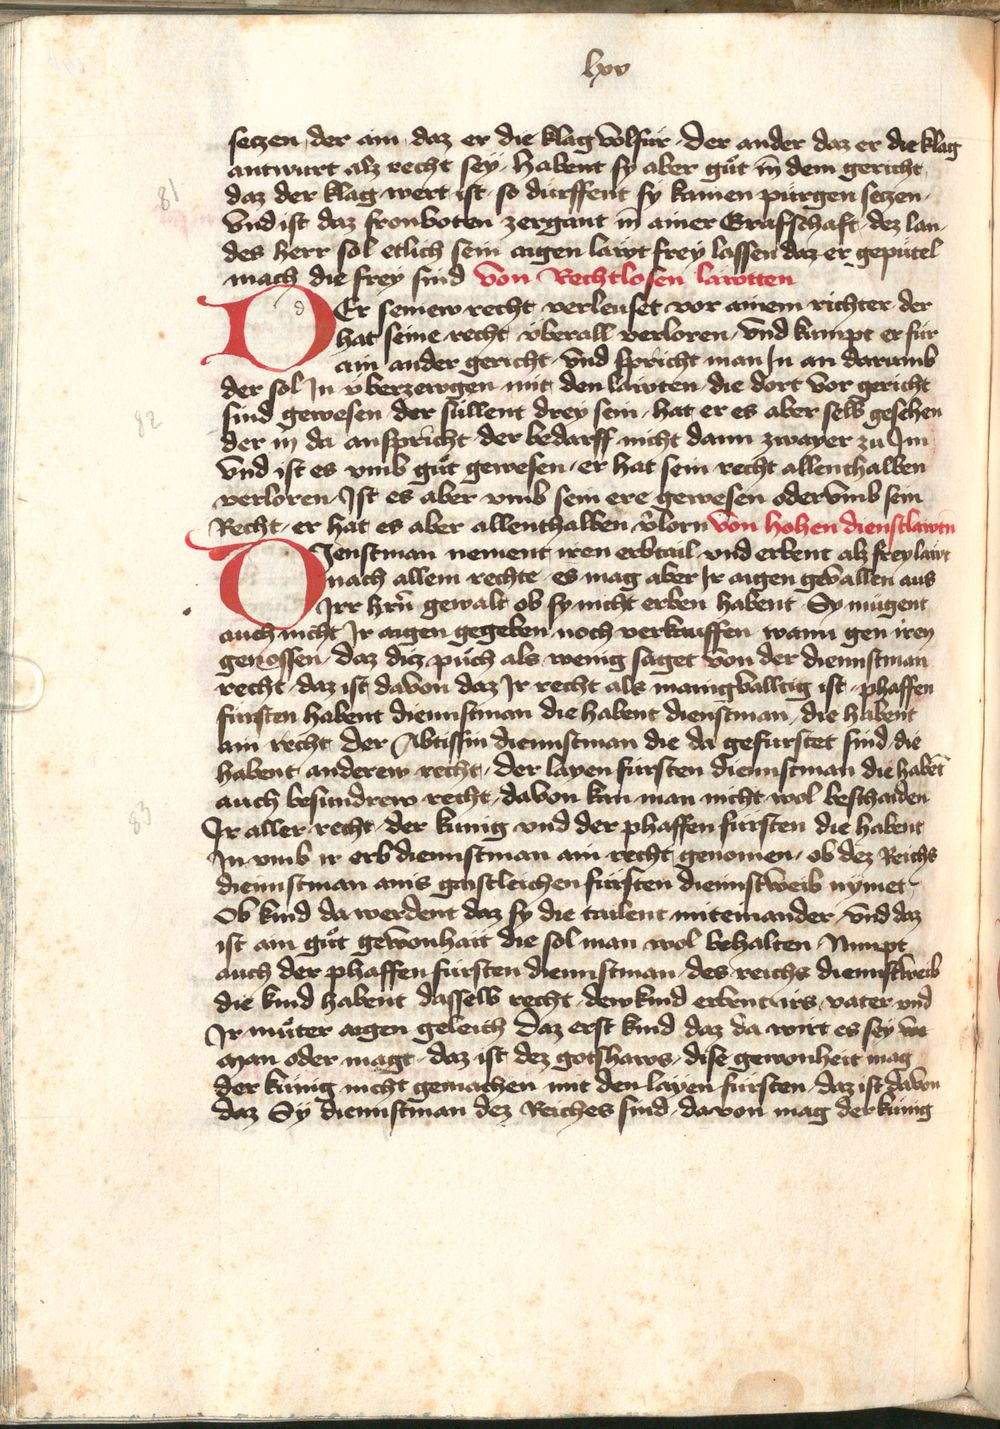 lxv
seczen der ain daz er die klag volfür der ander daz er die klag
antwurt alz recht sey habent sy aber gůt in dem gericht
81
daz der klag wert ist so dürffent sy kainen pürgen seczen
Vnd ist daz fronboten zergant in ainer Grafschaft dez lan
des herr sol etlich sein aigen lawt frey lassen daz er gepütel
mach die frey sind von Rechtlosen lawtten
DEr seinew recht verleuset vor ainem richter der
hat seine recht überall verloren vnd kumpt er für
ain ander gericht vnd spricht man In an darumb
der sol In überzewgen mit den lawten die dort vor gericht
82
sind gewesen der süllent drey sein hat er es aber selb gesehen
der in da anspricht der bedarff nicht dann zwayer zu Im
vnd ist es vmb gůt gewesen er hat sein recht allenthalben
verloren Ist es aber vmb sein ere gewesen oder vmb sein
Recht er hat es aber allenthalben v̄lorn von hohen dienstlawtn
DIenstman nement iren erbtail vnd erbent alz frey lawt
nach allem rechte es mag aber Ir aigen gevallen aus
Irr hrn̄ gewalt ob sy nicht erben habent Sy mügent
auch nicht Ir aigen gegeben noch verkauffen wann gen iren
genossen daz dicz půch als wenig saget von der diennstman
recht daz ist davon daz Ir recht als manigvalltig ist phaffen
fürsten habent diennstman die habent dienstman die habent
ain recht der Abtissin diennstman die da gefürstet sind die
habent anderew recht der layen fürsten diennstman die habēt
auch besundrew recht davon kan man nicht wol beschaiden
83
Ir aller recht der künig vnd der phaffen fürsten die habent
In vmb ir erb diennstman ain recht genomen ob dez Reichs
diennstman ains gaistleichen fürsten diennstweib nymet
Ob kind da werdent daz sy die tailent miteinander vnd daz
ist ain gůt gewonhait die sol man wol behalten Nimpt
auch der phaffen fürsten diennstman des reichs diennstweib
die kind habent dasselb recht dew kind erbent irs vater vnd
Ir můter aigen geleich daz erst kind daz da wirt es sey
man oder magt daz ist dez gotshaws dise gewonheit mag
der künig nicht gemachen mit den layen fürsten daz ist davon
daz Sy diennstman dez Reiches sind davon mag der künig